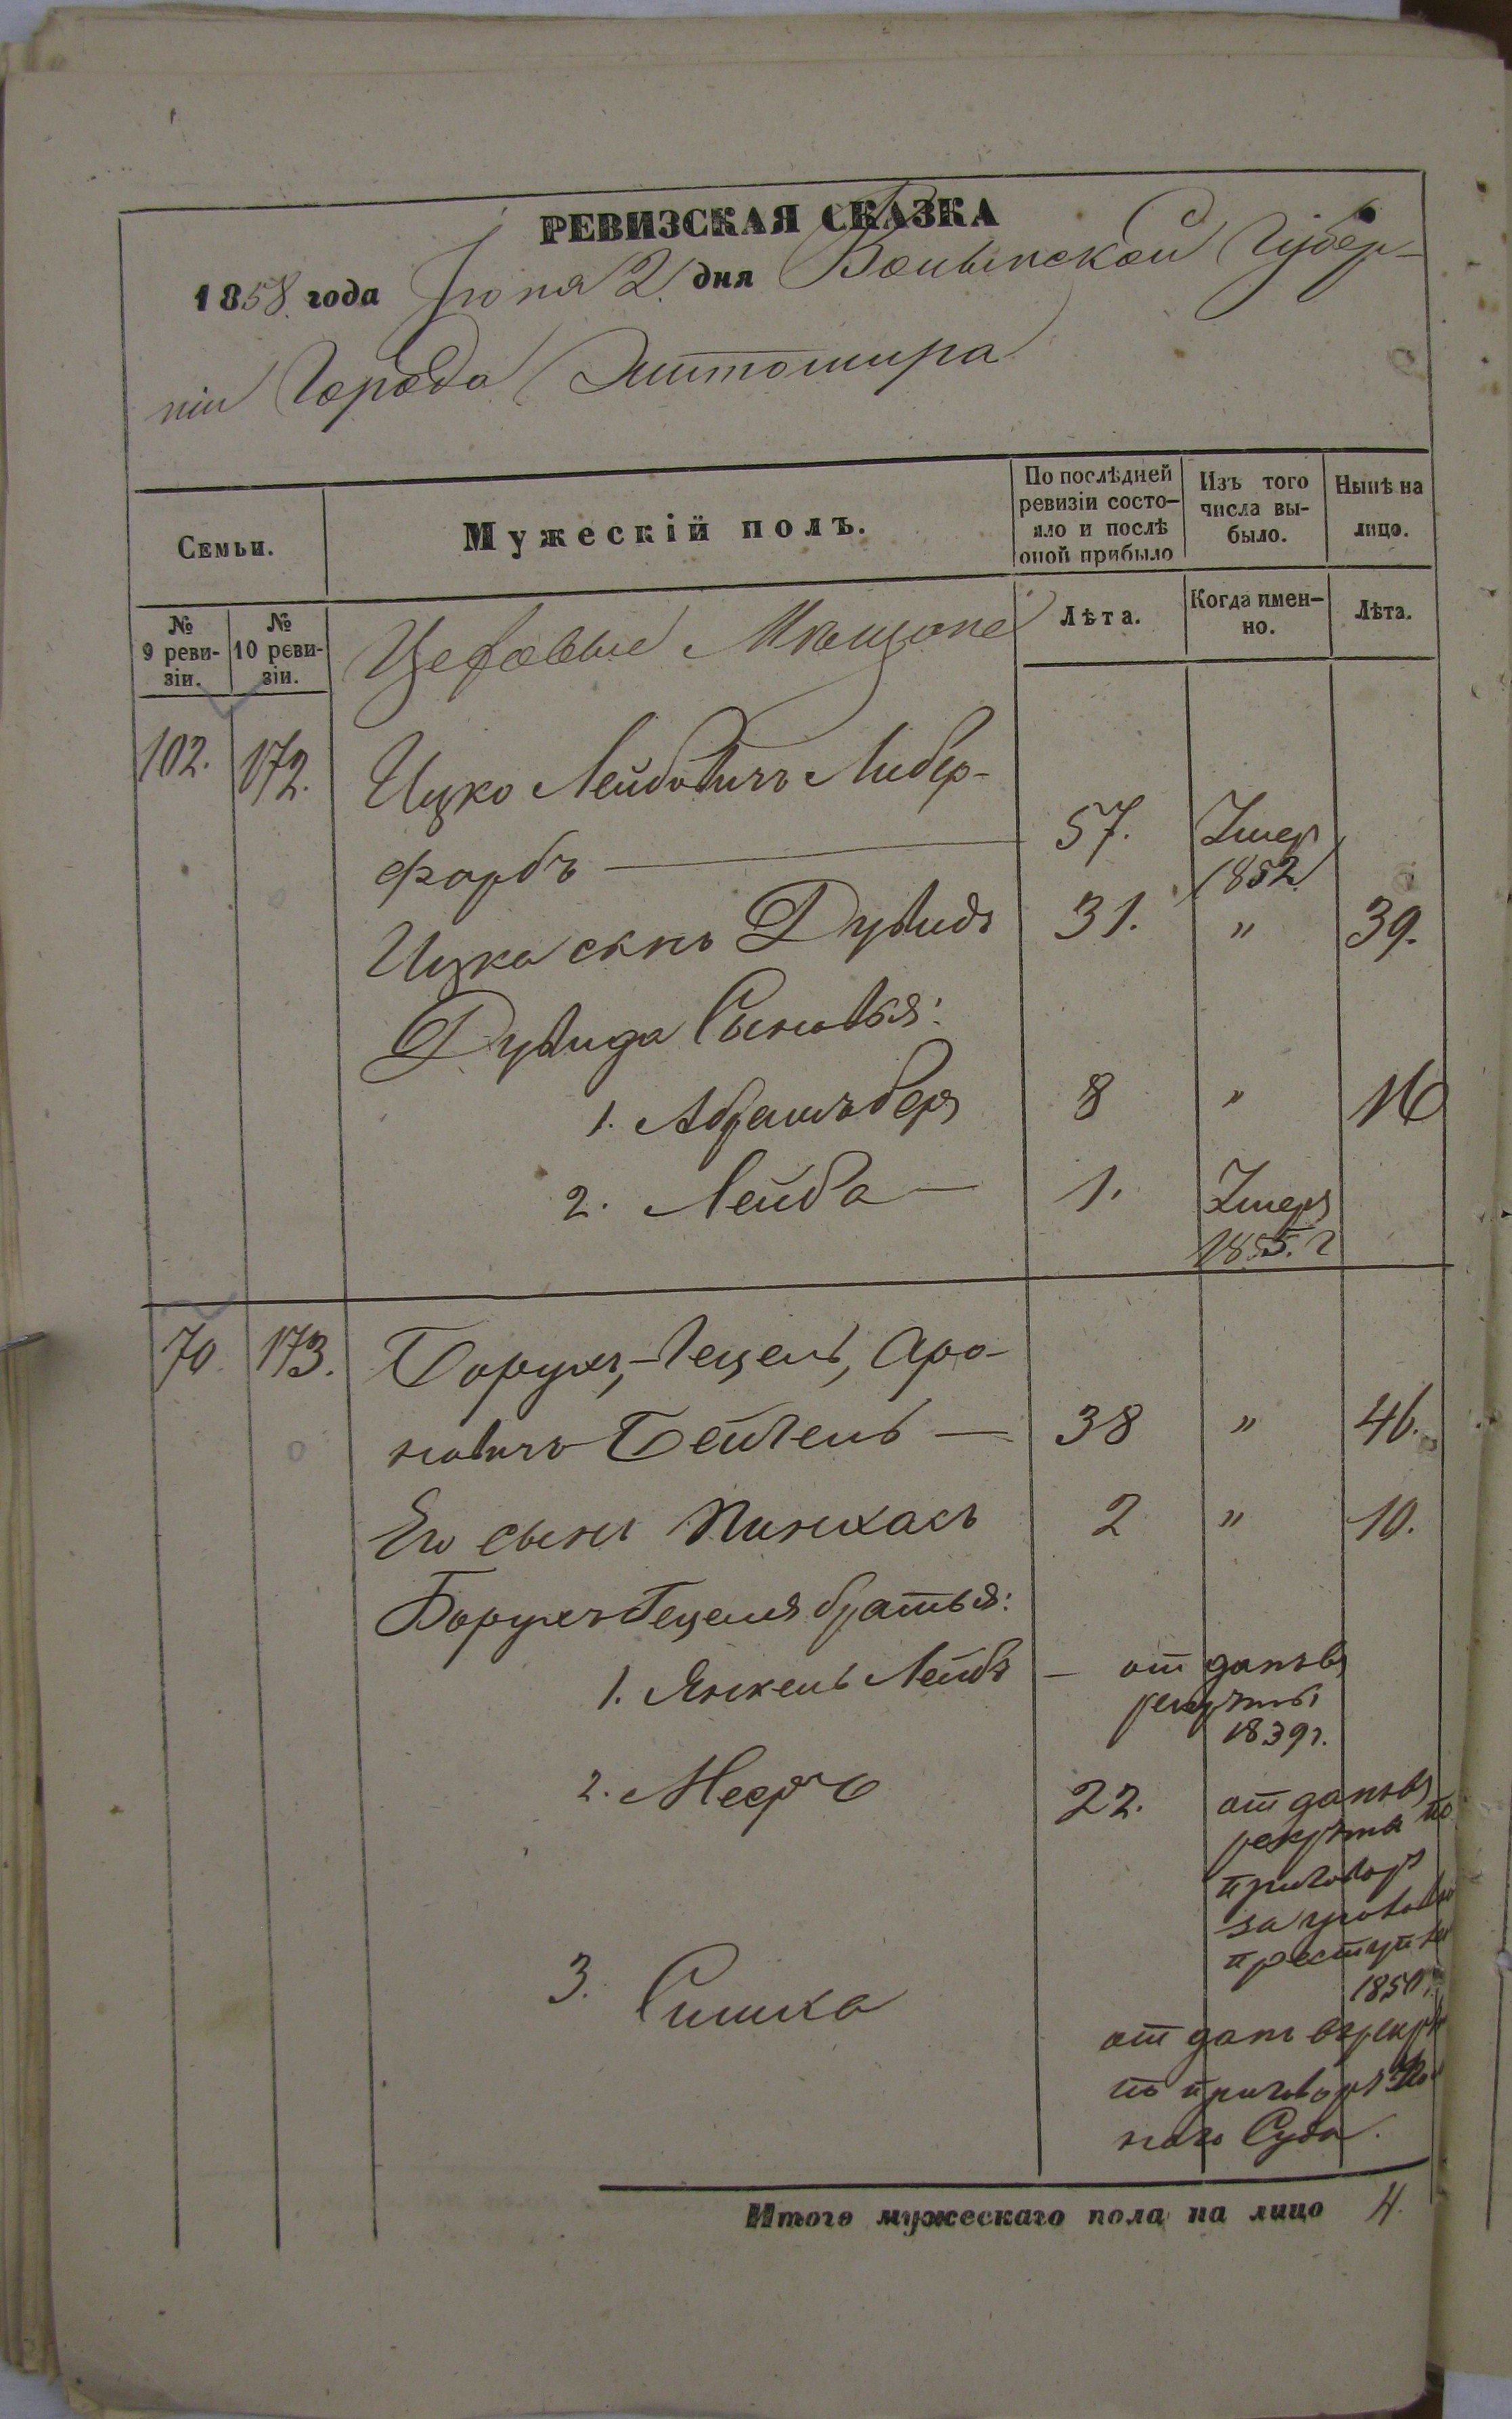 РЕВИЗСКАЯ СКАЗКА
1858. года Іюня 2. дня Волынской Губер-
ніи Города Житомира
Семьи.
Мужескій полъ.
По послѣдней ревизіи состо-
яло и послѣ
оной прибыло
Изъ того
числа вы-
было.
Нынѣ на
лицо.
№
9 реви-
зіи.
№
10 реви-
зіи.
Цеховые Мѣщане
Лѣта.
Когда имен-
но.
Лѣта.
102. 172. Ицко Лейбовичъ Либер-
фарбъ — 57. Умер
1852
Ицка сынъ Дувидъ 31. " 39.
Дувида Сыновья:
1. Абрамъ Беръ 8 " 16
2. Лейба — 1. Умеръ
1855. г
70. 173. Борухъ-Гецель, Аро-
новичъ Бейгель — 38 " 46.
Его сынъ Пинхасъ 2 " 10.
Борухъ Гецеля братья:
1. Янкель Лейбъ — отданъ въ
рекруты
1839 г.
2. Мееръ 22. отданъ въ
рекрута по
приговору
за
1850.
3. Симха
отданъ въ рекр
по приговору
наго Суда.
Итого мужескаго пола на лицо 4.